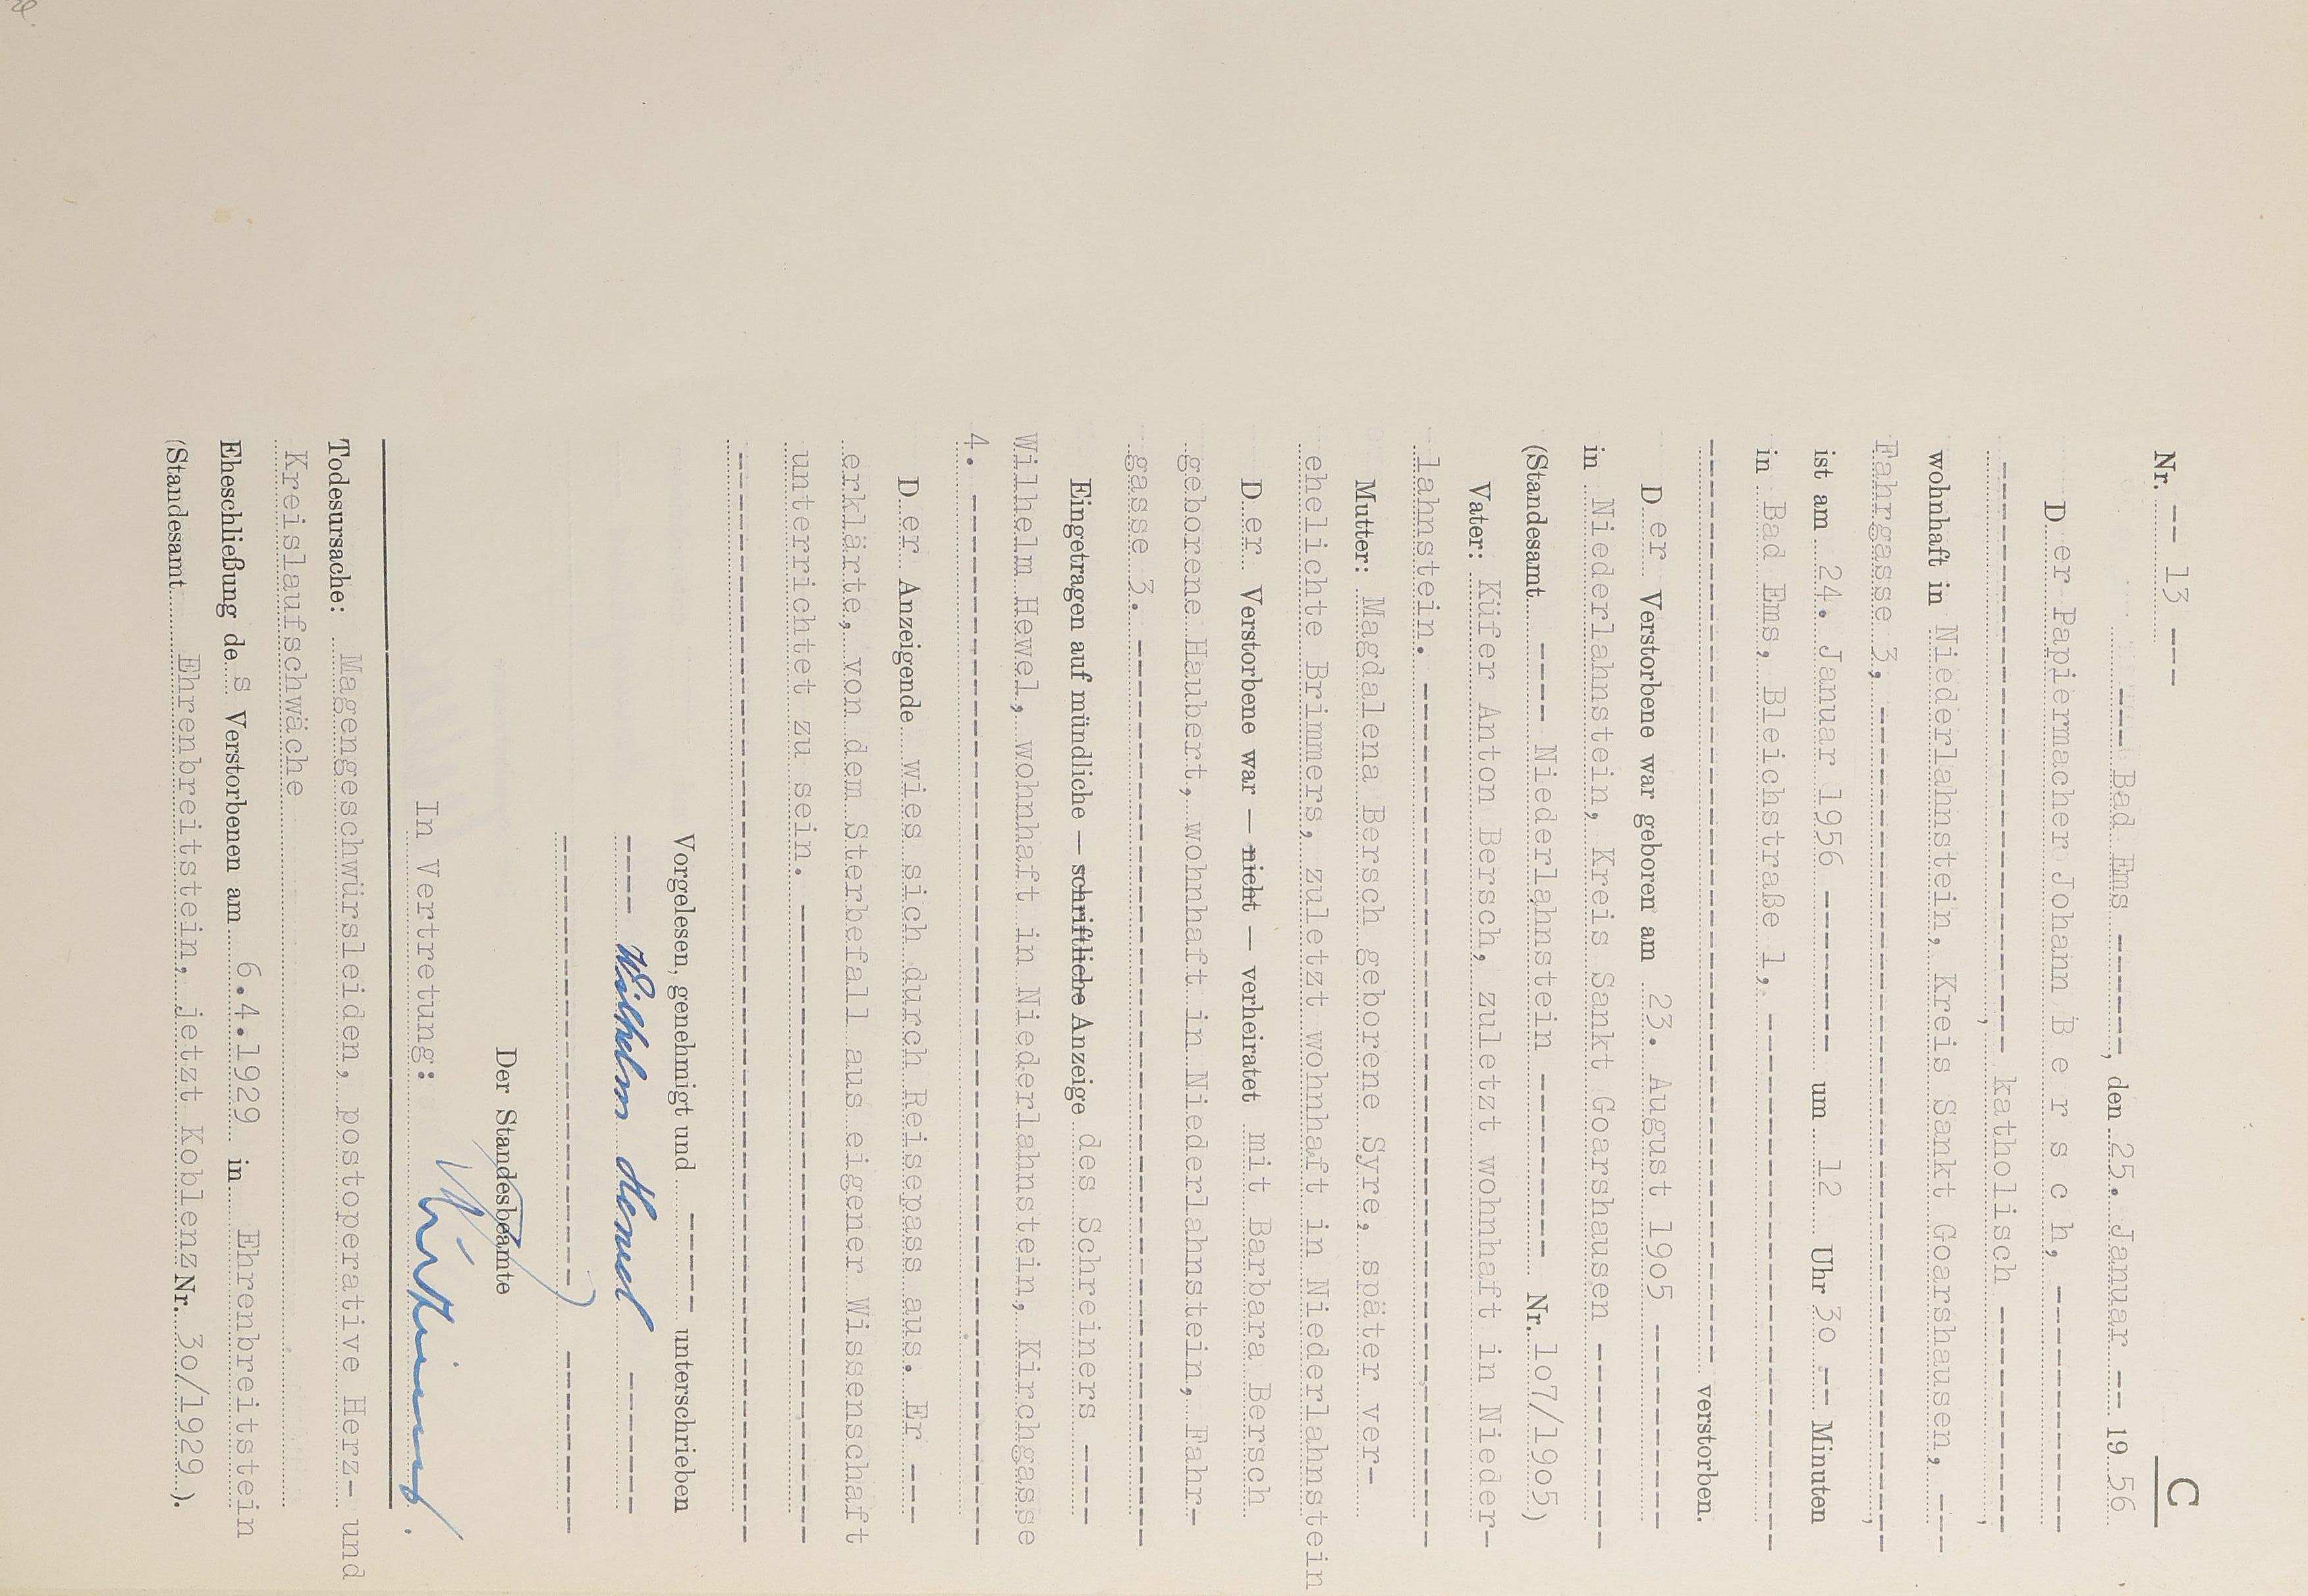 C
Nr. -- 13 ---
--- Bad Ems ------, den 25. Januar -- 19 56
Der Papiermacher Johann B e r s c h, ---------
---------------------, katholisch ---------,
wohnhaft in Niederlahnstein, Kreis Sankt Goarshausen, ---
Fahrgasse 3, ------------------------------,
ist am 24. Januar 1956 -------- um 12 Uhr 3o -- Minuten
in Bad Ems, Bleichstraße 1, --------------------
---------------------------------- verstorben.
Der Verstorbene war geboren am 23. August 19o5 --------
in Niederlahnstein, Kreis Sankt Goarshausen --------
(Standesamt ---- Niederlahnstein --------- Nr. 1o7/19o5)
Vater: Küfer Anton Bersch, zuletzt wohnhaft in Nieder-
lahnstein. --------------------------------
Mutter: Magdalena Bersch geborene Syre, später ver-
ehelichte Brimmers, zuletzt wohnhaft in Niederlahnstein
Der Verstorbene war — nicht — verheiratet mit Barbara Bersch
geborene Haubert, wohnhaft in Niederlahnstein, Fahr-
gasse 3. ---------------------------------
Eingetragen auf mündliche — schriftliche Anzeige des Schreiners ----
Wilhelm Hewel, wohnhaft in Niederlahnstein, Kirchgasse
4. ----------------------------------------
Der Anzeigende wies sich durch Reisepass aus. Er ---
erklärte, von dem Sterbefall aus eigener Wissenschaft
unterrichtet zu sein. ------------------------
------------------------------------------
Vorgelesen, genehmigt und ----- unterschrieben
---- Wilhelm Hewel ------
----------------------- --------
Der Standesbeamte
In Vertretung:
Todesursache: Magengeschwürsleiden, postoperative Herz- und
Kreislaufschwäche
Eheschließung des Verstorbenen am 6.4.1929 in Ehrenbreitstein
(Standesamt Ehrenbreitstein, jetzt Koblenz Nr. 3o/1929 ).